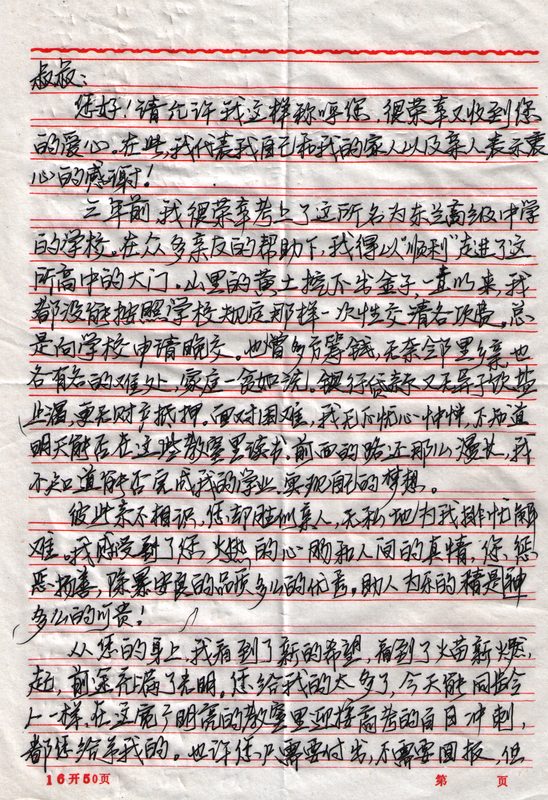 叔叔:
您好!请允许我这样称呼您,很荣幸又收到您
的爱心。在此,我代表我自己和我的家人以及亲人表示衷
心的感谢!
三年前,我很荣幸考上了这所名为东兰高级中学
的学校。在众多亲友的帮助下,我得以“顺利”走进了这
所高中的大门。山里的黄土挖不出金子,一直以来,我
都没能按照学校规定那样一次性交清各项费。总
是向学校申请晚交。也曾多方筹钱,无奈邻里乡亲也
各有各的难处,家庭一贫如洗。银行贷款又无异于饮盐
止渴,更无财产抵押。面对困难,我无不忧心忡忡,不知道
明天能否在这些教室里读书,前面的路还那么漫长,我
不知道能否完成我的学业,实现自己的梦想。
彼此素不相识,您却胜似亲人,无私地为我排忧解
难。我感受到了您火热的心肠和人间的真情,您惩
恶扬善,除暴安良的品质多么的优秀。助人为乐的精神是
多么的可贵!
从您的身上,我看到了新的希望,看到了火苗新燃
起,前途充满了光明。您给我的太多了,今天能同你今
一样,在这宽广明亮的教室里迎接高考的百日冲刺,
都您给予我的。也许您只需要付出,不需要回报,但
16开50页 第 页